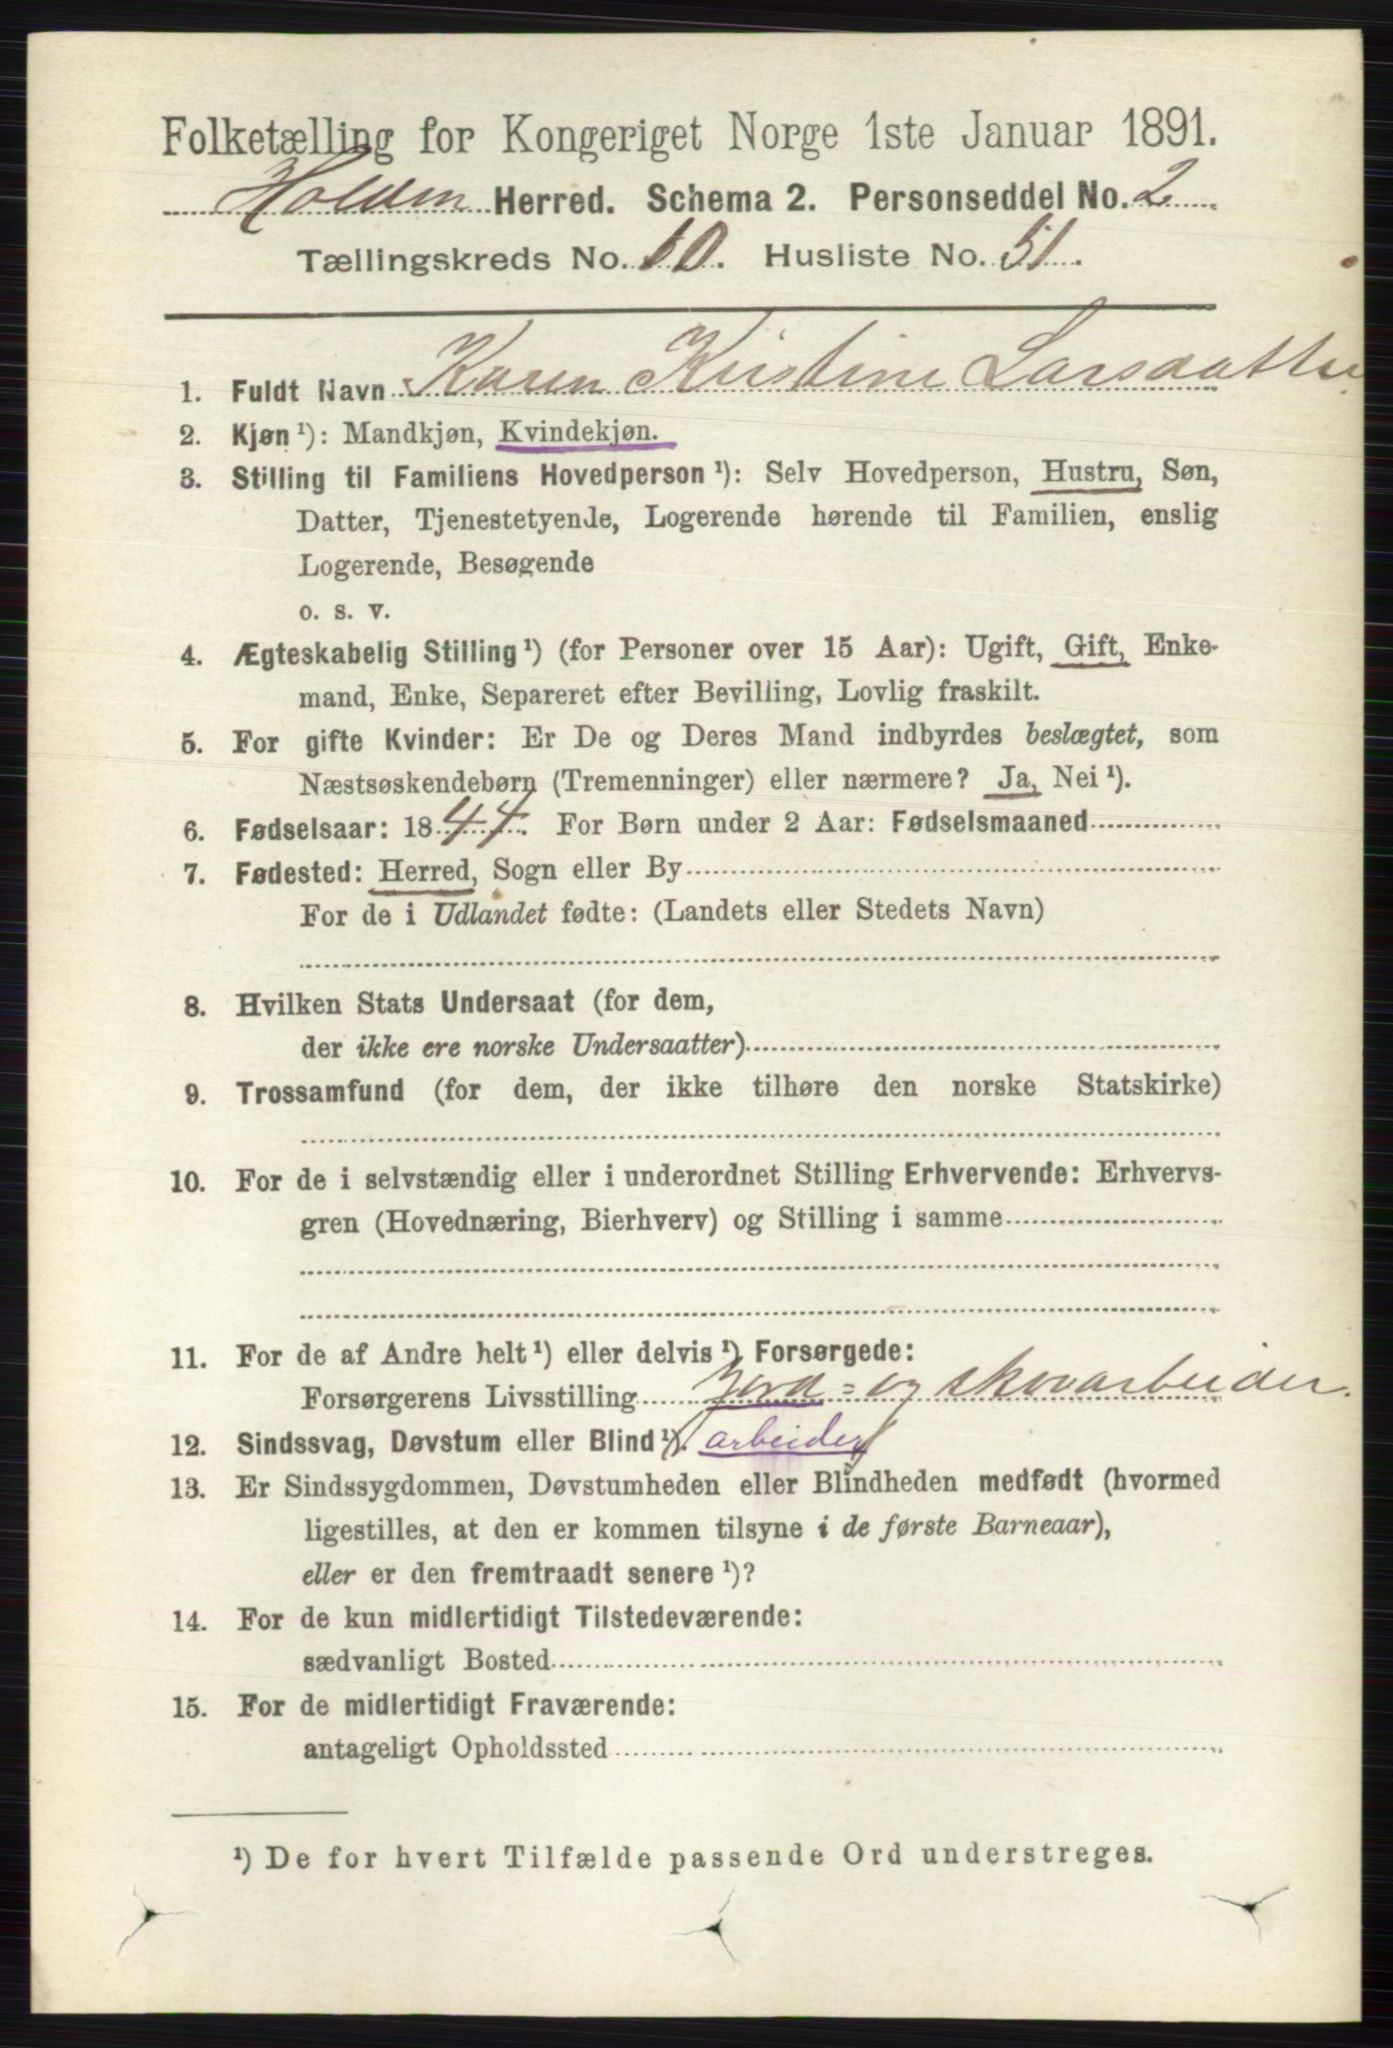 Folketælling for Kongeriget Norge 1ste Januar 1891.
Holden Herred. Schema 2. Personseddel No. 2
Tællingskreds No. 10. Husliste No. 51.
1. Fuldt Navn Karen Kristine Larsdatter
2. Kjøn ¹): Mandkjøn, Kvindekjøn.
3. Stilling til Familiens Hovedperson ¹): Selv Hovedperson, Hustru, Søn,
Datter, Tjenestetyende, Logerende hørende til Familien, enslig
Logerende, Besøgende
o. s. v.
4. Ægteskabelig Stilling ¹) (for Personer over 15 Aar): Ugift, Gift, Enke-
mand, Enke, Separeret efter Bevilling, Lovlig fraskilt.
5. For gifte Kvinder: Er De og Deres Mand indbyrdes beslægtet, som
Næstsøskendebørn (Tremenninger) eller nærmere? Ja, Nei ¹).
6. Fødselsaar: 1844. For Børn under 2 Aar: Fødselsmaaned
7. Fødested: Herred, Sogn eller By
For de i Udlandet fødte: (Landets eller Stedets Navn)
8. Hvilken Stats Undersaat (for dem,
der ikke ere norske Undersaatter)
9. Trossamfund (for dem, der ikke tilhøre den norske Statskirke)
10. For de i selvstændig eller i underordnet Stilling Erhvervende: Erhvervs-
gren (Hovednæring, Bierhverv) og Stilling i samme
11. For de af Andre helt ¹) eller delvis ¹) Forsørgede:
Forsørgerens Livsstilling Jord= og skovarbeider.
12. Sindssvag, Døvstum eller Blind ¹). arbeider
13. Er Sindssygdommen, Døvstumheden eller Blindheden medfødt (hvormed
ligestilles, at den er kommen tilsyne i de første Barneaar),
eller er den fremtraadt senere ¹)?
14. For de kun midlertidigt Tilstedeværende:
sædvanligt Bosted
15. For de midlertidigt Fraværende:
antageligt Opholdssted
¹) De for hvert Tilfælde passende Ord understreges.